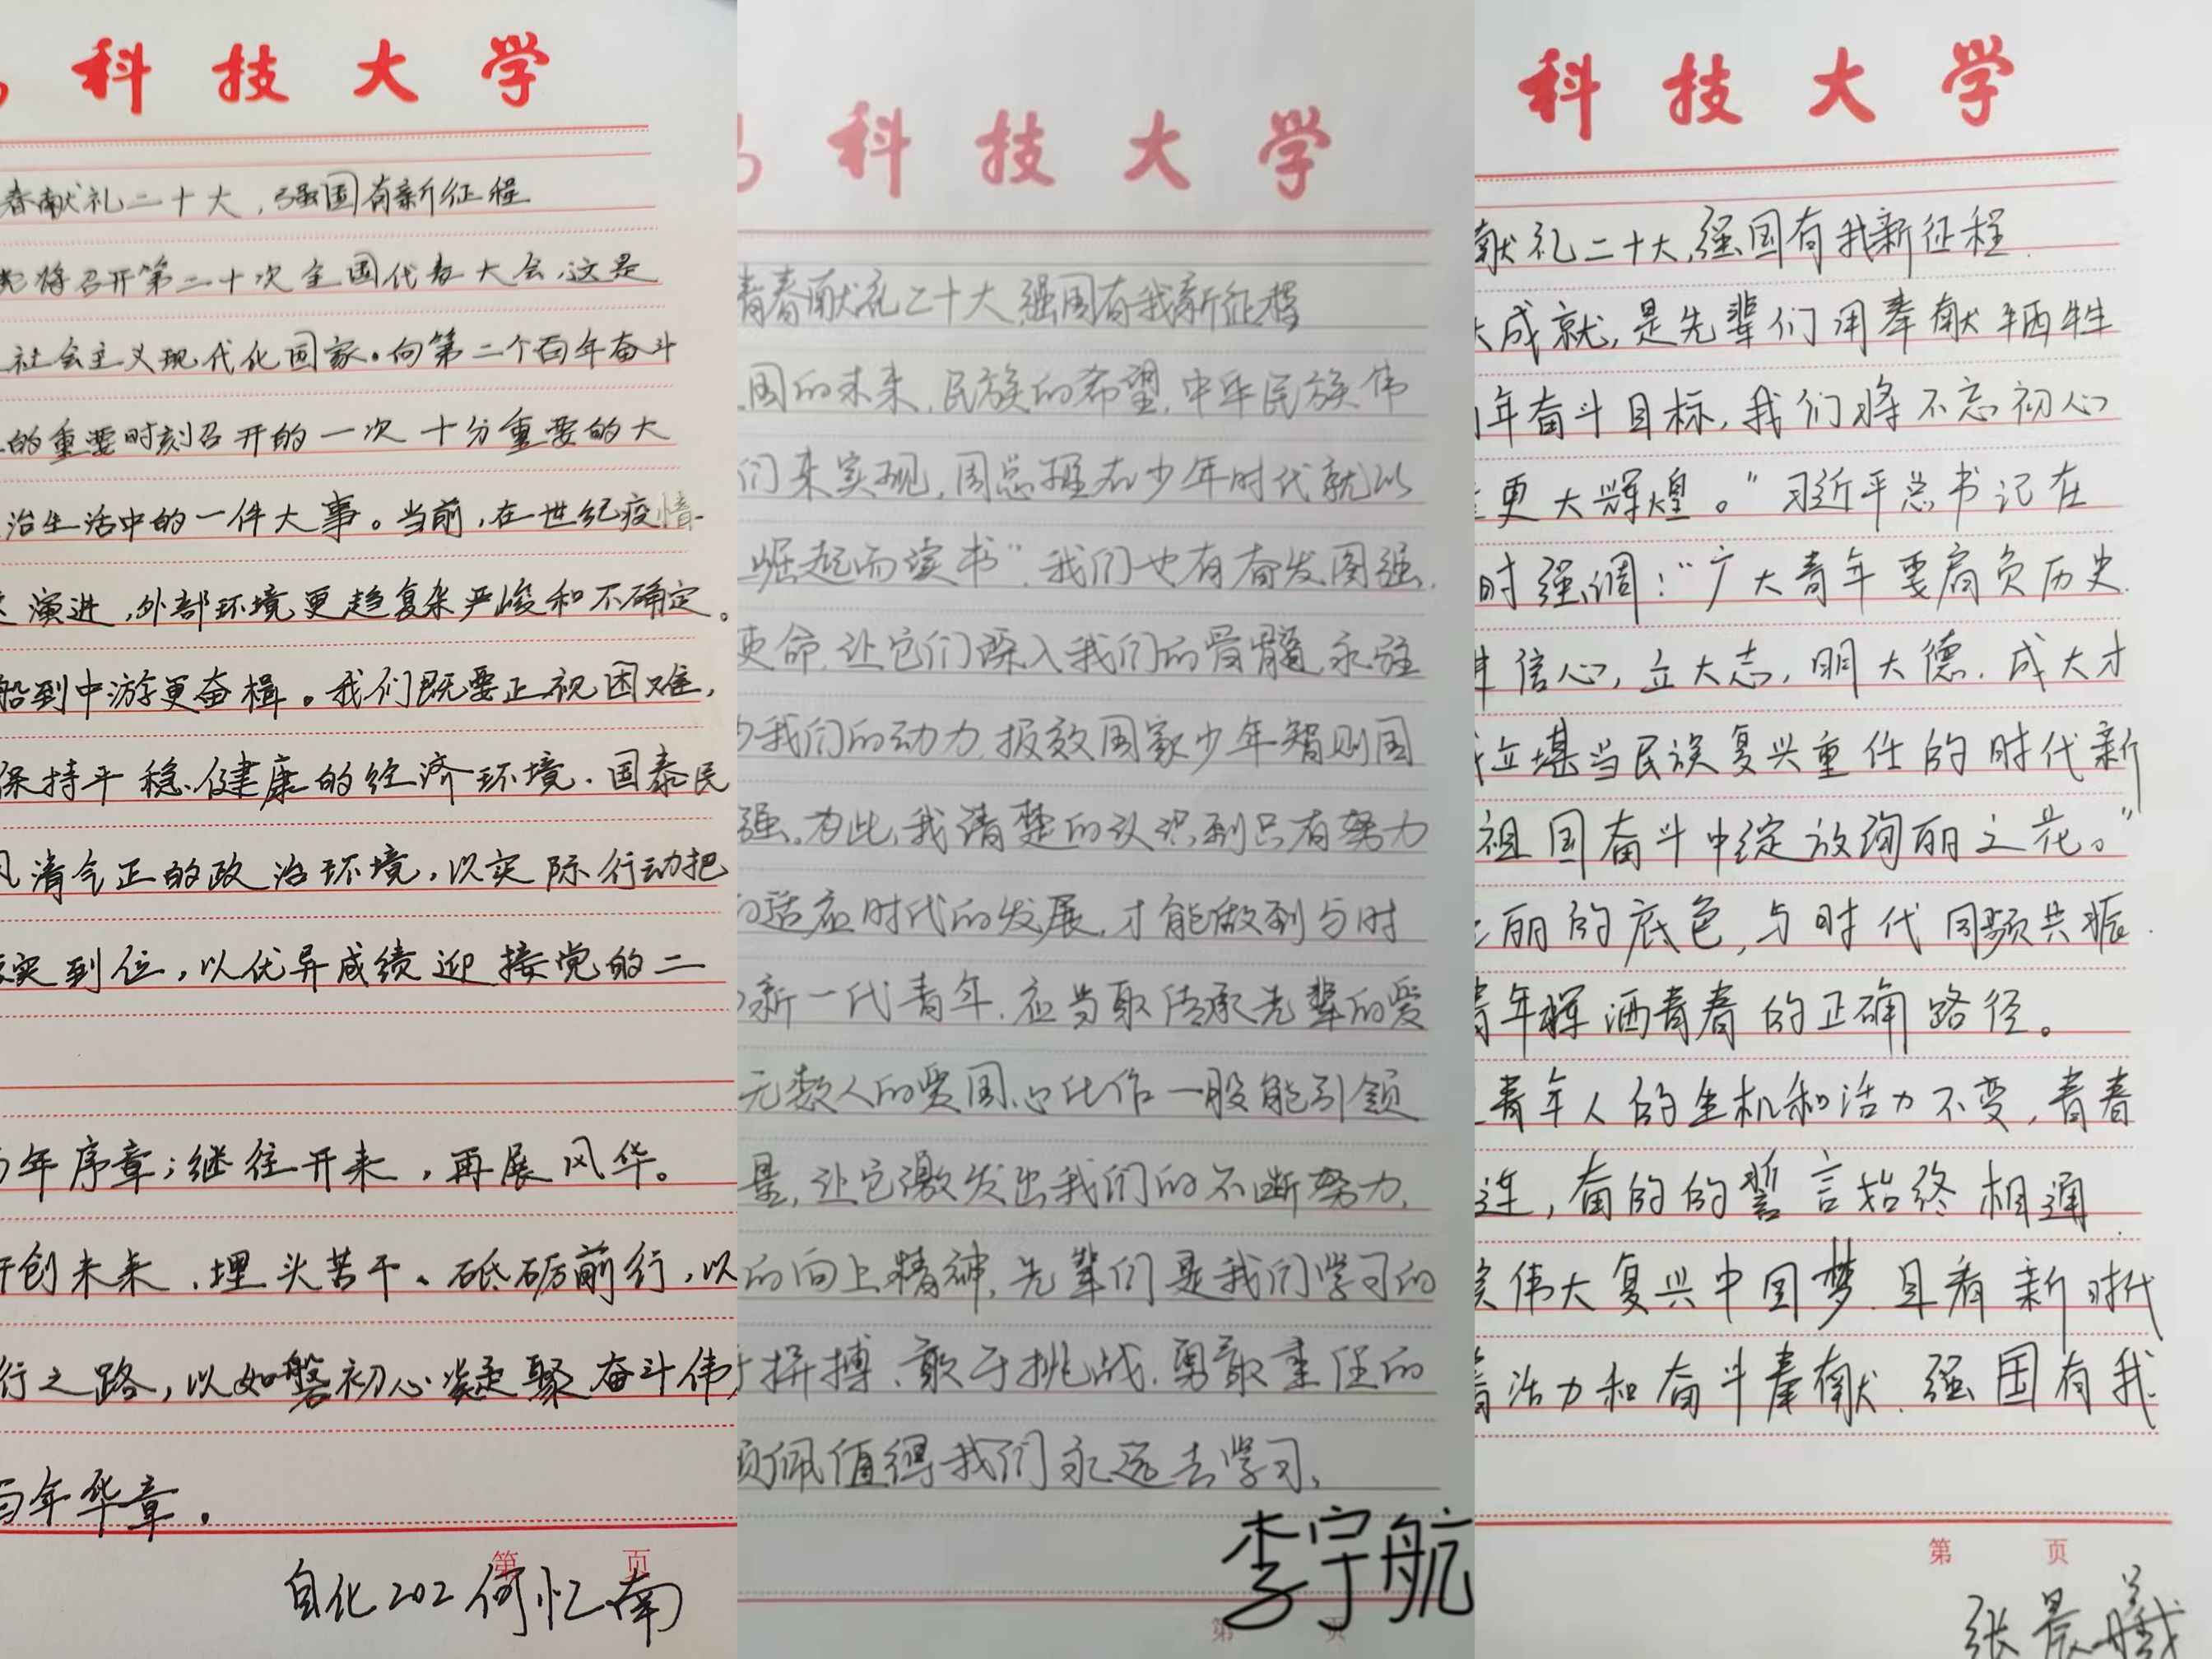 科技大学
春献礼二十大，强国有新征程
党将召开第二十次全国代表大会，这是
社会主义现代化国家。向第二个百年奋斗
的重要时刻召开的一次十分重要的大
治生活中的一件大事。当前，在世纪疫情
演进，外部环境更趋复杂严峻和不确定。
船到中游更奋楫。我们既要正视困难，
保持平稳、健康的经济环境、国泰民
风清气正的政治环境，以实际行动把
实到位，以优异成绩迎接党的二
年序章；继往开来，再展风华。
开创未来、埋头苦干、砥砺前行，以
行之路，以如磐初心凝聚奋斗伟
百年华章。
第 页
自化202 何忆南
科技大学
青春献礼二十大 强国有我新征程
国的未来，民族的希望，中华民族伟
们来实现，周总理在少年时代就以
崛起而读书"，我们也有奋发图强，
使命，让它们深入我们的骨髓，永驻
为我们的动力，报效国家少年智则国
强。为此，我清楚的认识到只有努力
的适应时代的发展，才能做到与时
新一代青年，应当取传承先辈的爱
无数人的爱国心比作一股能引领
量，让它激发出我们的不断努力，
的向上精神，先辈们是我们学习的
于拼搏、敢于挑战，勇敢重任的
钦佩值得我们永远去学习，
李宇航
第 页
科技大学
献礼二十大，强国有我新征程
大成就，是先辈们用奉献牺牲
年奋斗目标，我们将不忘初心
更大辉煌。"习近平总书记在
时强调："广大青年要肩负历史
信心，立大志，明大德，成大才
立堪当民族复兴重任的时代新
祖国奋斗中绽放绚丽之花。"
丽的底色，与时代同频共振
青年挥洒青春的正确路径。
青年人的生机和活力不变，青春
连，奋的的誓言始终相通
伟大复兴中国梦，且看新时代
着活力和奋斗奉献，强国有我
第 页
张晨曦